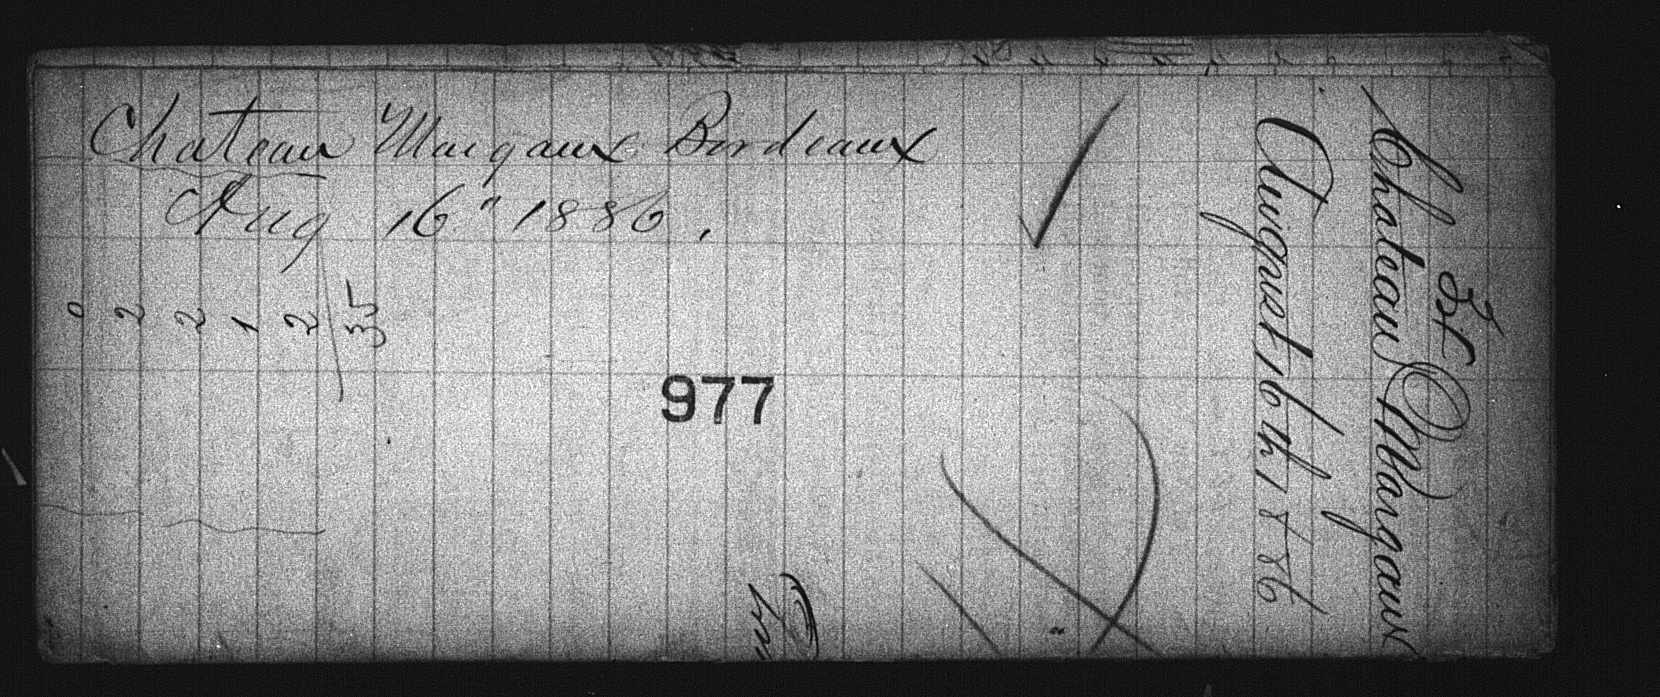 Chateau Margaux Bordeaux
Aug 16" 1886.
0
2
2
1
2
35
977
St
Chateau Margaux
August 16th 1886